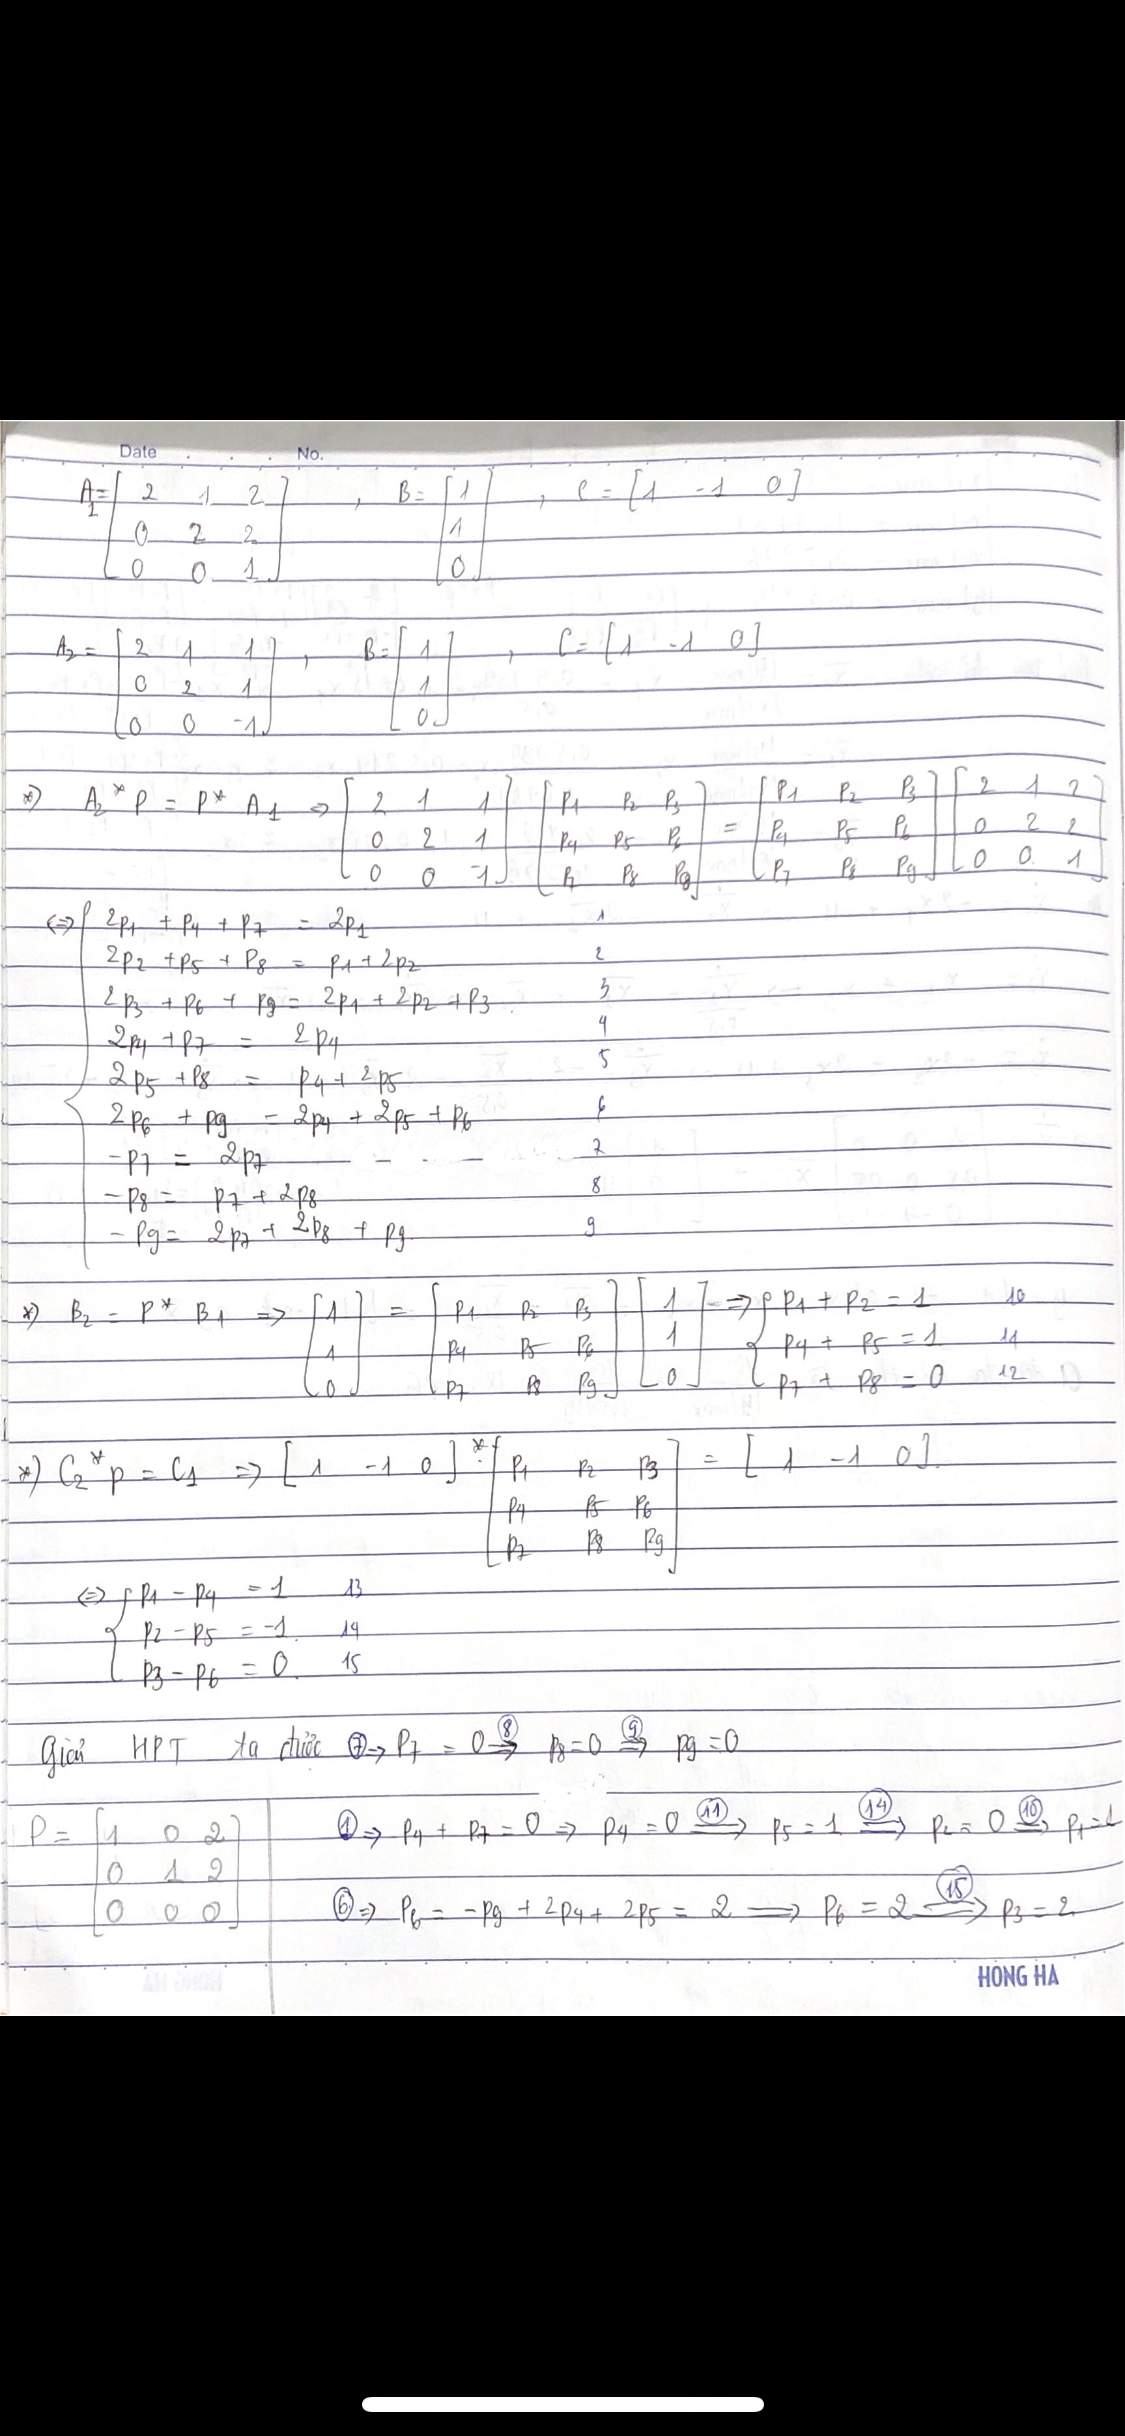 Date . . . No.
A₁ = [ 2 1 2 ; 0 2 2 ; 0 0 1 ] , B = [ 1 ; 1 ; 0 ] , C = [ 1 -1 0 ]
A₂ = [ 2 1 1 ; 0 2 1 ; 0 0 -1 ] , B = [ 1 ; 1 ; 0 ] , C = [ 1 -1 0 ]
*) A₂ * P = P * A₁ => [ 2 1 1 ; 0 2 1 ; 0 0 -1 ] [ P₁ P₂ P₃ ; P₄ P₅ P₆ ; P₇ P₈ P₉ ] = [ P₁ P₂ P₃ ; P₄ P₅ P₆ ; P₇ P₈ P₉ ] [ 2 1 2 ; 0 2 2 ; 0 0 1 ]
<=> { 2p₁ + p₄ + p₇ = 2p₁ 1
2p₂ + p₅ + p₈ = p₁ + 2p₂ 2
2p₃ + p₆ + p₉ = 2p₁ + 2p₂ + p₃ 3
2p₄ + p₇ = 2p₄ 4
2p₅ + p₈ = p₄ + 2p₅ 5
2p₆ + p₉ = 2p₄ + 2p₅ + p₆ 6
-p₇ = 2p₇ 7
-p₈ = p₇ + 2p₈ 8
-p₉ = 2p₇ + 2p₈ + p₉ 9
*) B₂ = P * B₁ => [ 1 ; 1 ; 0 ] = [ P₁ P₂ P₃ ; P₄ P₅ P₆ ; P₇ P₈ P₉ ] [ 1 ; 1 ; 0 ] => { p₁ + p₂ = 1 10
p₄ + p₅ = 1 11
p₇ + p₈ = 0 12
*) C₂ * P = C₁ => [ 1 -1 0 ] * [ P₁ P₂ P₃ ; P₄ P₅ P₆ ; P₇ P₈ P₉ ] = [ 1 -1 0 ]
<=> { p₁ - p₄ = 1 13
p₂ - p₅ = -1 14
p₃ - p₆ = 0 15
Giải HPT ta được ⑦ => p₇ = 0 =>⑧ p₈ = 0 =>⑨ p₉ = 0
P = [ 1 0 2 ; 0 1 2 ; 0 0 0 ]
① => p₄ + p₇ = 0 => p₄ = 0 =>⑪ p₅ = 1 =>⑭ p₂ = 0 =>⑩ p₁ = 1
⑥ => p₆ = -p₉ + 2p₄ + 2p₅ = 2 => p₆ = 2 =>⑮ p₃ = 2
HONG HA